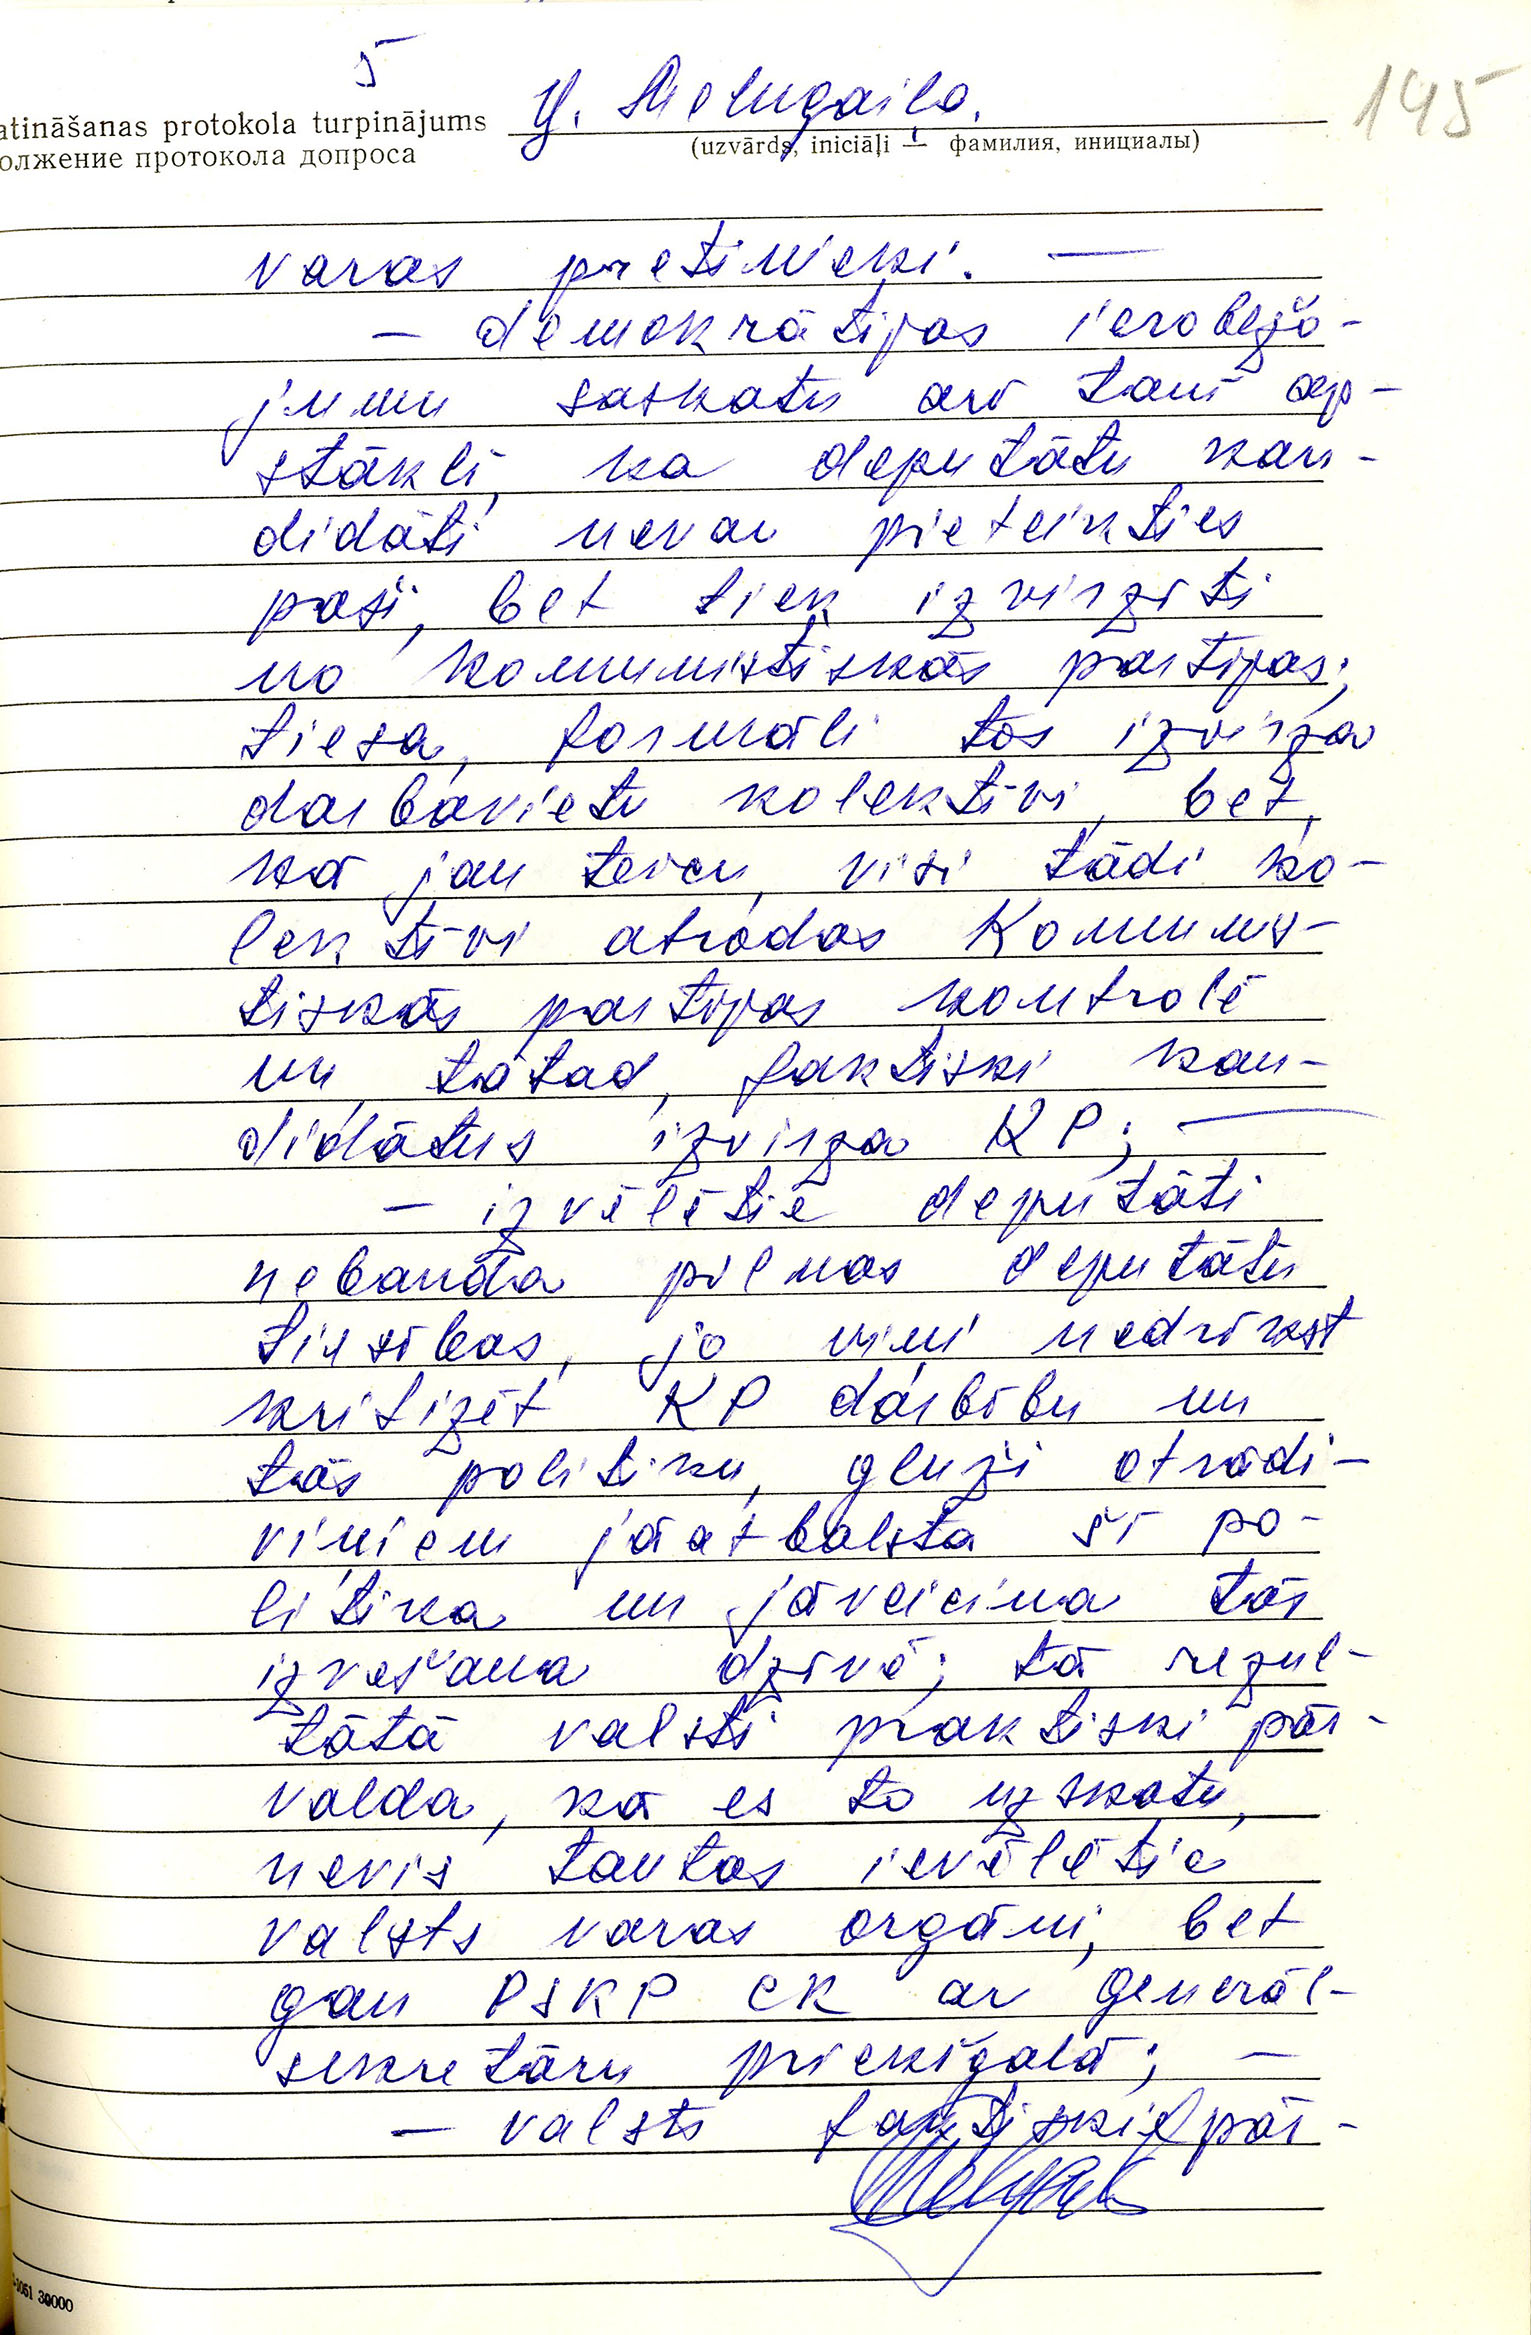 5
145
atināšanas protokola turpinājums У. Мелнgailo.
олжение протокола допроса (uzvārds, iniciāļi — фамилия, инициалы)
varas pretinieki. —
— demokrātijas ierobežo-
jumu saskatu arī tanī ap-
stāklī, ka deputātu kan-
didāti nevar pieteikties
paši, bet tiek izvirzīti
no komunistiskās partijas;
tiesa, formāli tos izvirza
darbavietu kolektīvi, bet,
kā jau teicu, visi tādi ko-
lektīvi atrodas Komunis-
tiskās partijas kontrolē
un, tātad, faktiski kan-
didātus izvirza KP; —
— izvēlētie deputāti
nebauda pilnas deputātu
tiesības, jo viņi nedrīkst
kritizēt KP darbību un
tās politiku, gluži otrādi -
viņiem jāatbalsta šī po-
litika un jāveicina tās
izvešana dzīvē; tā rezul-
tātā valsti praktiski pār-
valda, kā es to uzskatu,
nevis tautas ievēlētie
valsts varas orgāni, bet
gan PSKP CK ar ģenerāl-
sekretāru priekšgalā; —
— valsts faktiski pār-
-1051 30000